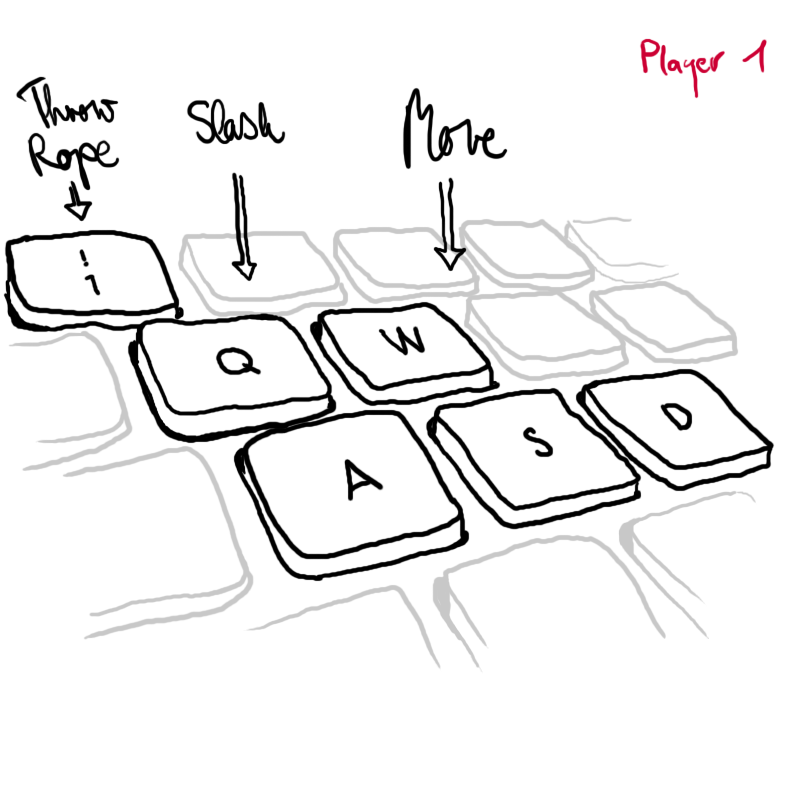 Player 1
Throw
Rope
Slash
Move
!
1
Q
W
A
S
D